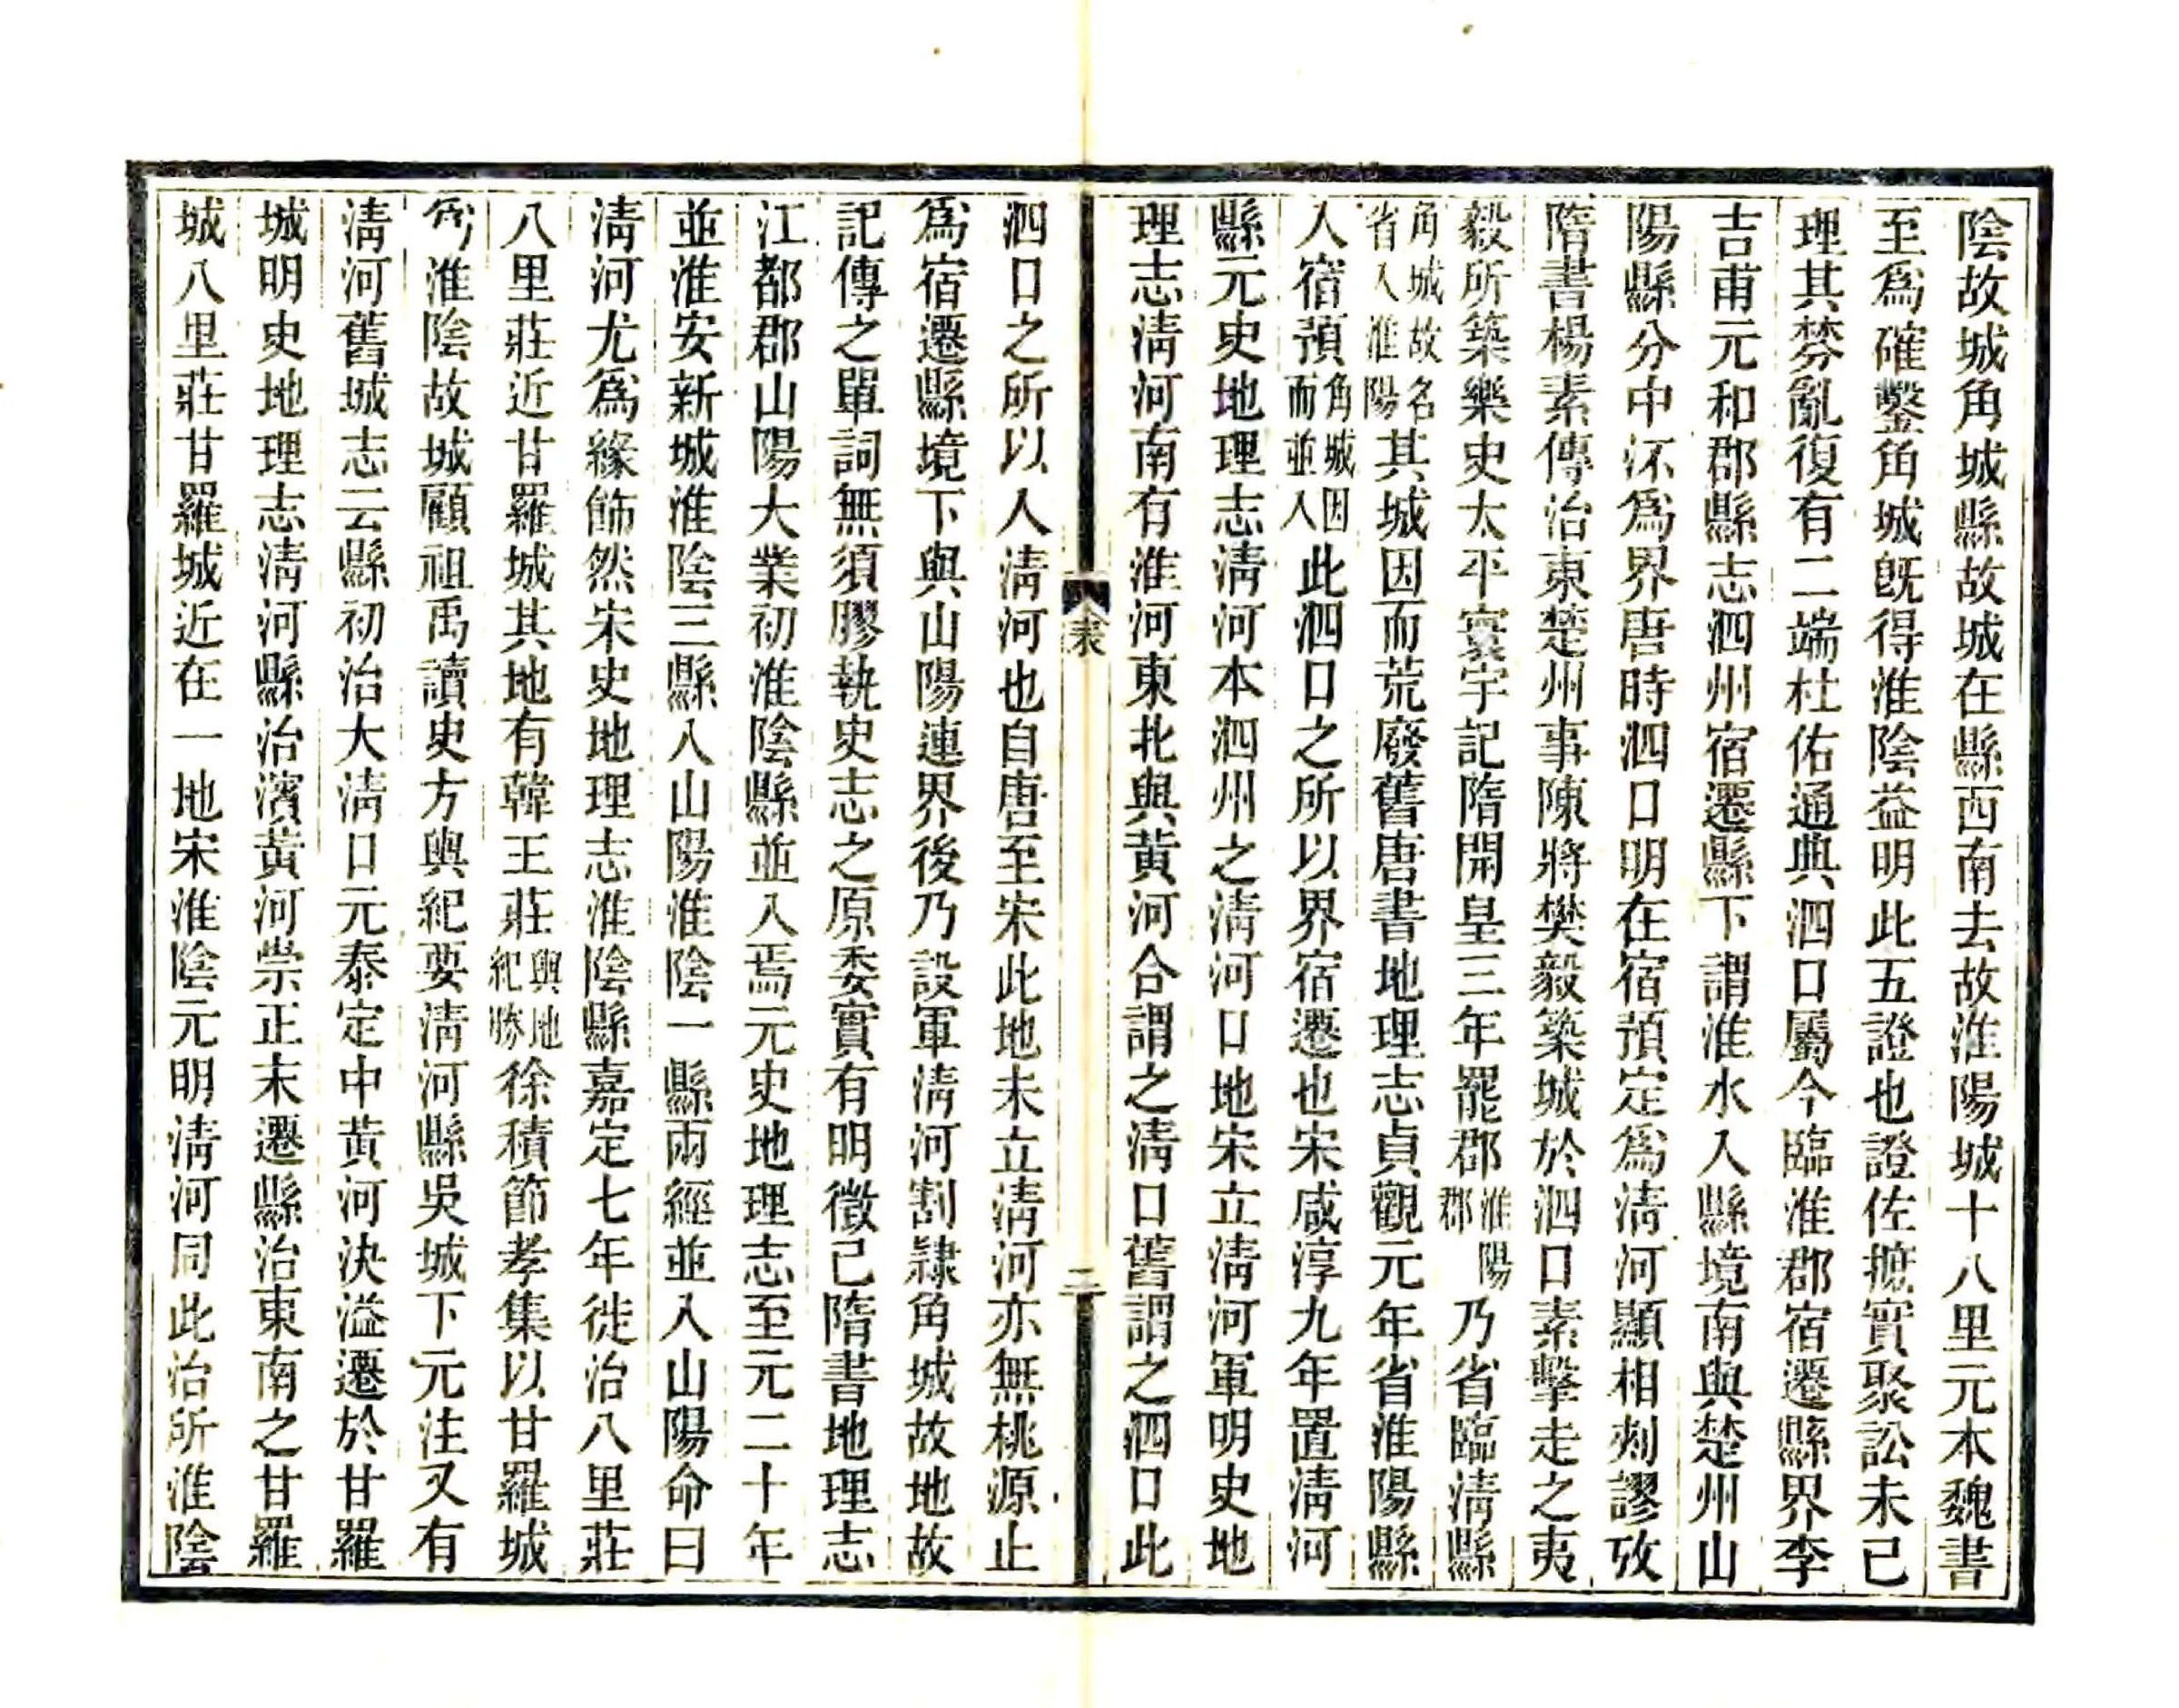 陰故城角城縣故城在縣西南去故淮陽城十八里元本魏書
至爲確鑿角城旣得淮陰益明此五證也證佐摭實聚訟未已
理其棼亂復有二端杜佑通典泗口屬今臨淮郡宿遷縣界李
吉甫元和郡縣志泗州宿遷縣下謂淮水入縣境南與楚州山
陽縣分中沠爲界唐時泗口明在宿預定爲淸河顯相刺謬攷
隋書楊素傳治東楚州事陳將樊毅築城於泗口素擊走之夷
毅所築樂史太平寰宇記隋開皇三年罷郡淮陽郡乃省臨淸縣
角城故名省入淮陽其城因而荒廢舊唐書地理志貞觀元年省淮陽縣
入宿預角城因而並入此泗口之所以界宿遷也宋咸淳九年置淸河
縣元史地理志淸河本泗州之淸河口地宋立淸河軍明史地
理志淸河南有淮河東北與黃河合謂之淸口舊謂之泗口此
表
二
泗口之所以入淸河也自唐至宋此地未立淸河亦無桃源止
爲宿遷縣境下與山陽連界後乃設軍淸河割隸角城故地故
記傳之單詞無須膠執史志之原委實有明徵已隋書地理志
江都郡山陽大業初淮陰縣並入焉元史地理志至元二十年
並淮安新城淮陰三縣入山陽淮陰一縣兩經並入山陽命曰
淸河尤爲緣飾然宋史地理志淮陰縣嘉定七年徙治八里莊
八里莊近甘羅城其地有韓王莊輿地紀勝徐積節孝集以甘羅城
爲淮陰故城顧祖禹讀史方輿紀要淸河縣吳城下元注又有
淸河舊城志云縣初治大淸口元泰定中黃河決溢遷於甘羅
城明史地理志淸河縣治濱黃河崇正末遷縣治東南之甘羅
城八里莊甘羅城近在一地宋淮陰元明淸河同此治所淮陰